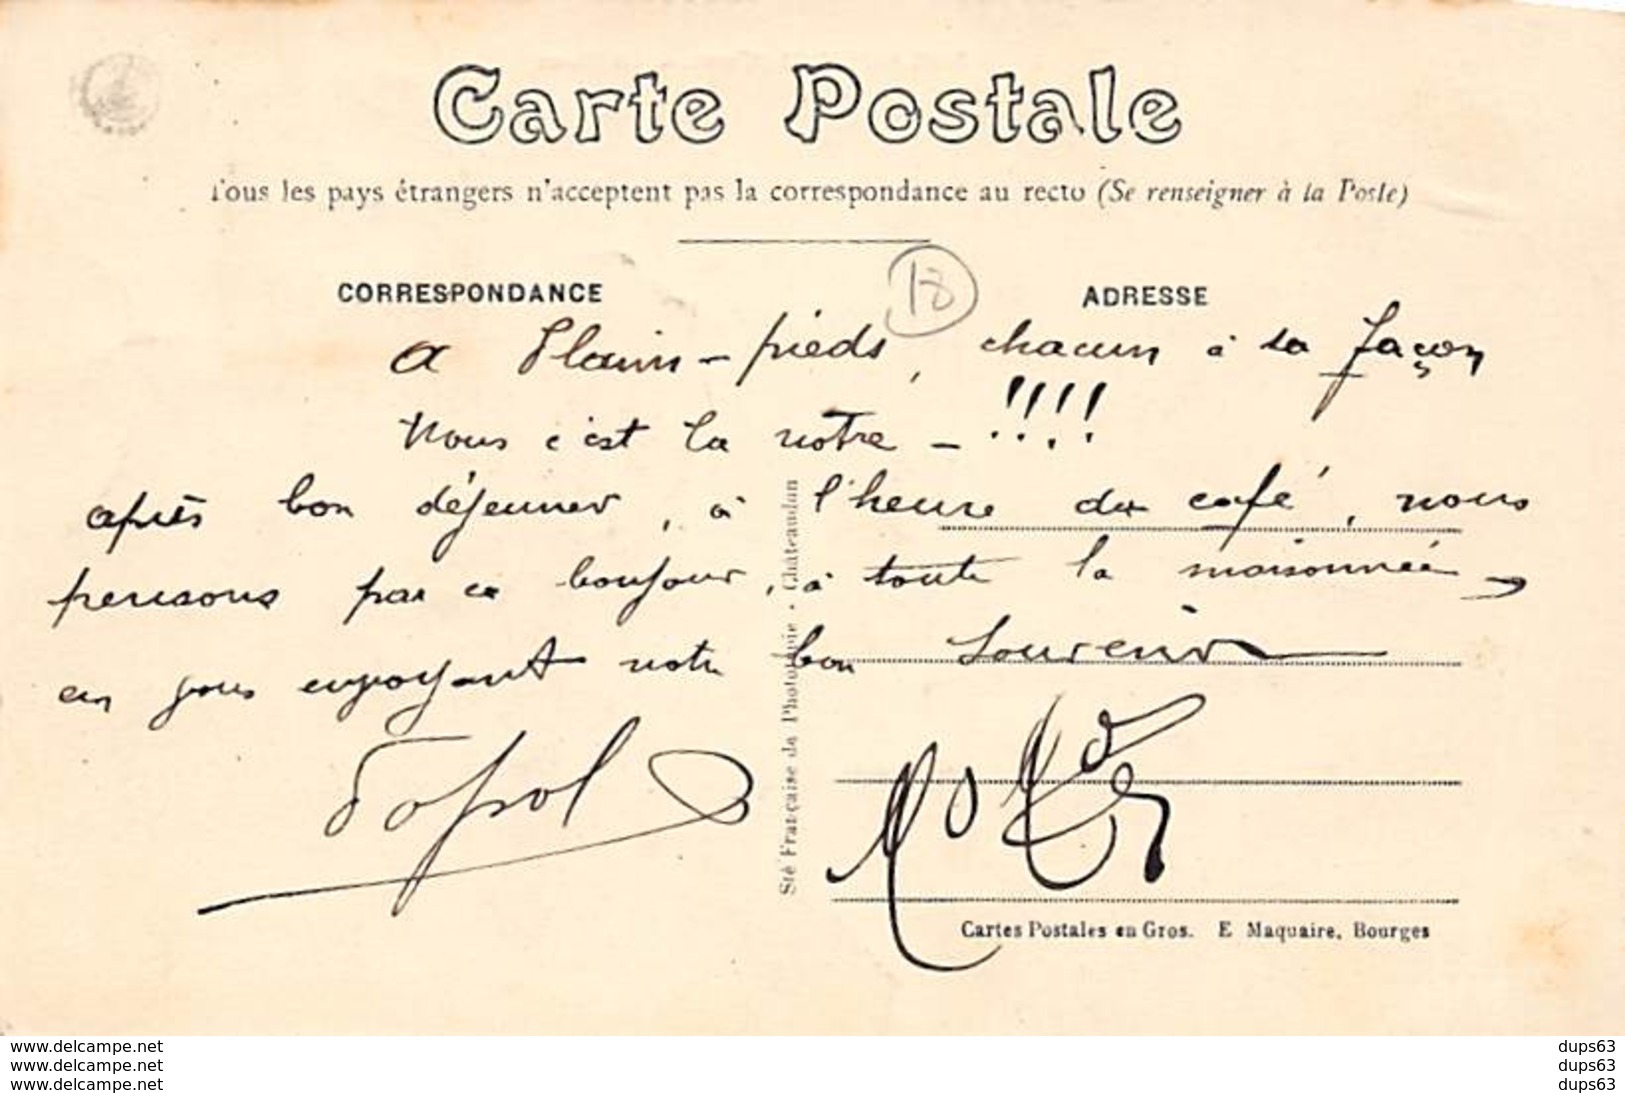 Carte Postale
Tous les pays étrangers n'acceptent pas la correspondance au recto (Se renseigner à la Poste)
18
CORRESPONDANCE
ADRESSE
a Plain-pieds, chacun à sa façon
Nous c'est la notre - !!!!
après bon déjeuner, à l'heure du café, nous
pensons par ce bonjour, à toute la maisonnée
en vous envoyant notre bon souvenir
Sté Française de Phototypie - Châteaudun
Cartes Postales en Gros. E Maquaire, Bourges
www.delcampe.net
www.delcampe.net
www.delcampe.net
dups63
dups63
dups63